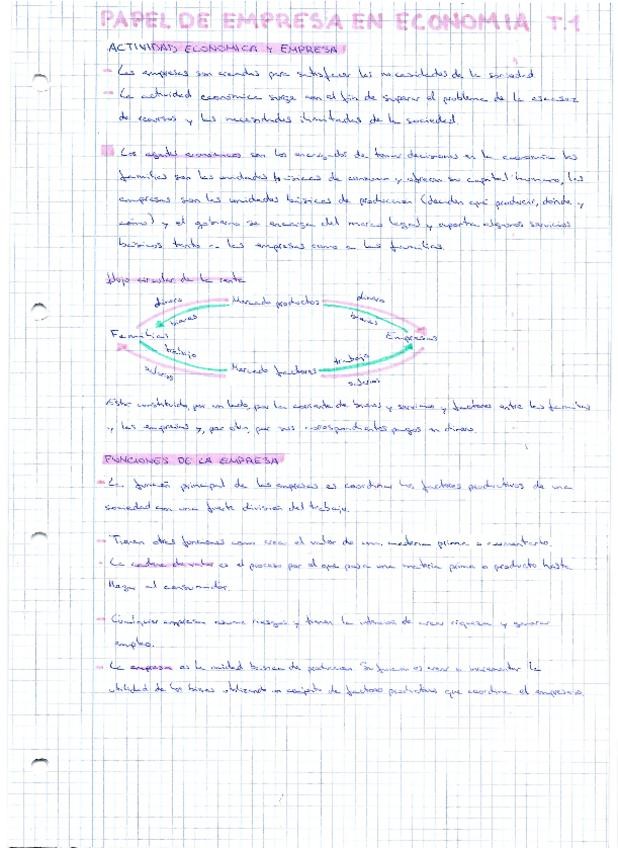 PAPEL DE EMPRESA EN ECONOMIA T.1
ACTIVIDAD ECONOMICA Y EMPRESA
- Las empresas son creadas para satisfacer las necesidades de la sociedad
- La actividad económica surge con el fin de superar el problema de la escasez
de recursos y las necesidades ilimitadas de la sociedad.
Los agentes económicos son los encargados de tomar decisiones en la economía las
familias son las unidades básicas de consumo y ofrecen su capital humano, las
empresas son las unidades básicas de producción (deciden qué producir, dónde y
cómo) y el gobierno se encarga del marco legal y aporta algunos servicios
básicos tanto a las empresas como a las familias.
Flujo circular de la renta
dinero Mercado productos dinero
bienes bienes
Familias Empresas
trabajo trabajo
salarios Mercado factores salarios
Está constituido, por un lado, por la corriente de bienes y servicios y factores entre las familias
y las empresas y, por otro, por sus correspondientes pagos en dinero.
FUNCIONES DE LA EMPRESA
- La función principal de las empresas es coordinar los factores productivos de una
sociedad con una fuerte división del trabajo.
- Tienen otras funciones como crear el valor de una materia prima o aumentarlo.
- La cadena de valor es el proceso por el que pasa una materia prima o producto hasta
llegar al consumidor.
- Cualquier empresa asume riesgos y tienen la de crear riqueza y generar
empleo.
- La empresa es la unidad básica de producción. Su función es crear o incrementar la
utilidad de los bienes utilizando un conjunto de factores productivos que coordina el empresario.